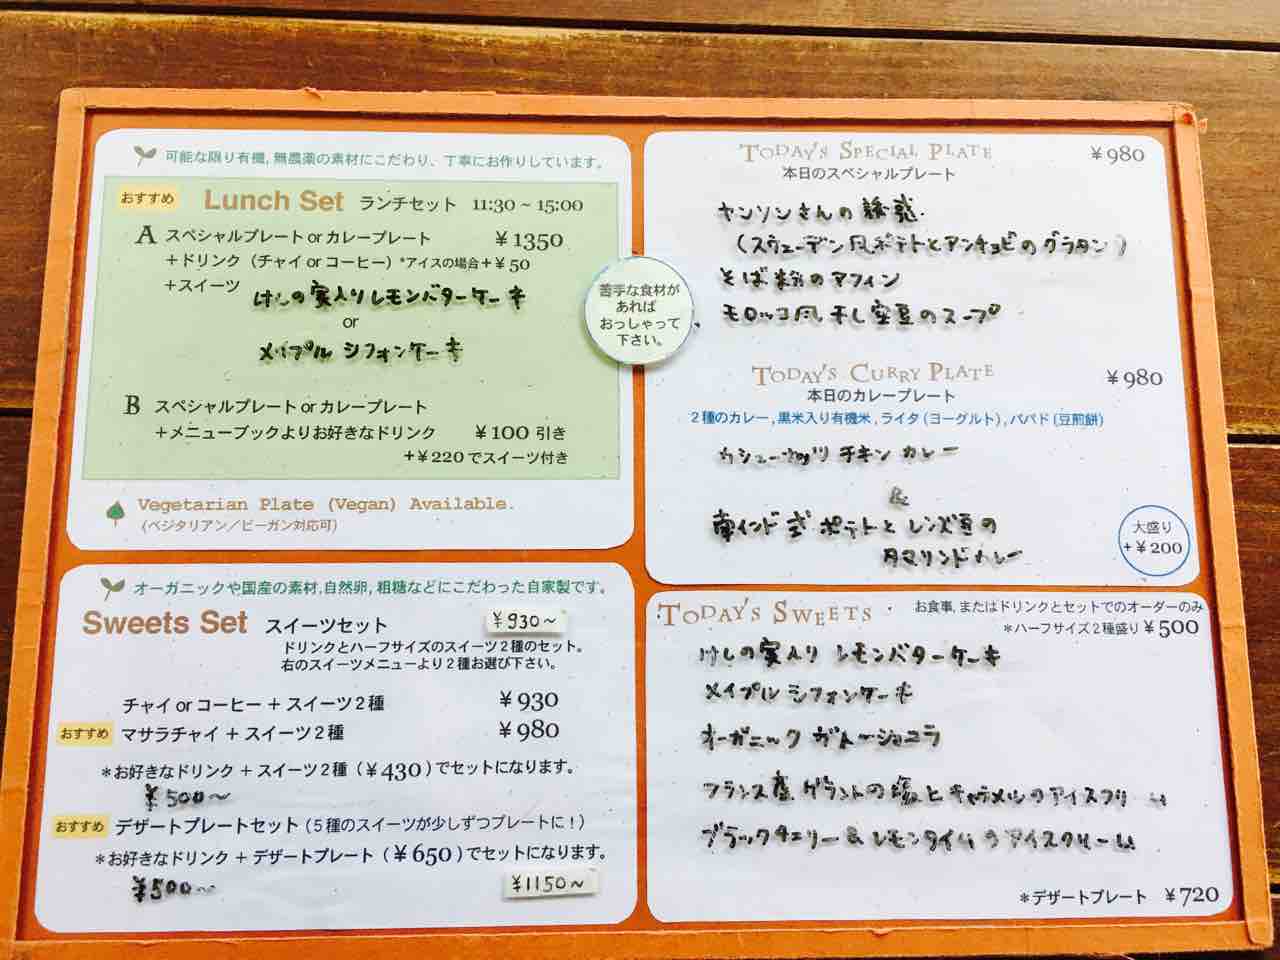 可能な限り有機, 無農薬の素材にこだわり、丁寧にお作りしています。
おすすめ Lunch Set ランチセット 11:30 ~ 15:00
A スペシャルプレート or カレープレート ¥1350
+ドリンク(チャイ or コーヒー) *アイスの場合+¥50
+スイーツ
けしの実入りレモンバターケーキ
or
メイプルシフォンケーキ
B スペシャルプレート or カレープレート
+メニューブックよりお好きなドリンク ¥100 引き
+¥220でスイーツ付き
Vegetarian Plate (Vegan) Available.
(ベジタリアン/ビーガン対応可)
苦手な食材が
あれば
おっしゃって
下さい。
オーガニックや国産の素材,自然卵, 粗糖などにこだわった自家製です。
Sweets Set スイーツセット ¥930~
ドリンクとハーフサイズのスイーツ2種のセット。
右のスイーツメニューより2種お選び下さい。
チャイ or コーヒー + スイーツ2種 ¥930
おすすめ マサラチャイ + スイーツ2種 ¥980
*お好きなドリンク + スイーツ2種 (¥430) でセットになります。
¥500~
おすすめ デザートプレートセット (5種のスイーツが少しずつプレートに!)
*お好きなドリンク + デザートプレート (¥650) でセットになります。
¥500~ ¥1150~
TODAY'S SPECIAL PLATE ¥980
本日のスペシャルプレート
ヤンソンさんの誘惑
(スウェーデン風ポテトとアンチョビのグラタン)
そば粉のマフィン
モロッコ風干し空豆のスープ
TODAY'S CURRY PLATE ¥980
本日のカレープレート
2種のカレー, 黒米入り有機米, ライタ (ヨーグルト), パパド (豆煎餅)
カシューナッツ チキン カレー
&
南インド式 ポテトとレンズ豆の
タマリンドカレー
大盛り
+¥200
TODAY'S SWEETS ・ お食事, またはドリンクとセットでのオーダーのみ
*ハーフサイズ2種盛り ¥500
けしの実入り レモンバターケーキ
メイプルシフォンケーキ
オーガニック ガトーショコラ
フランス産ゲランドの塩とキャラメルのアイスクリーム
ブラックチェリー&レモンタイムのアイスクリーム
*デザートプレート ¥720